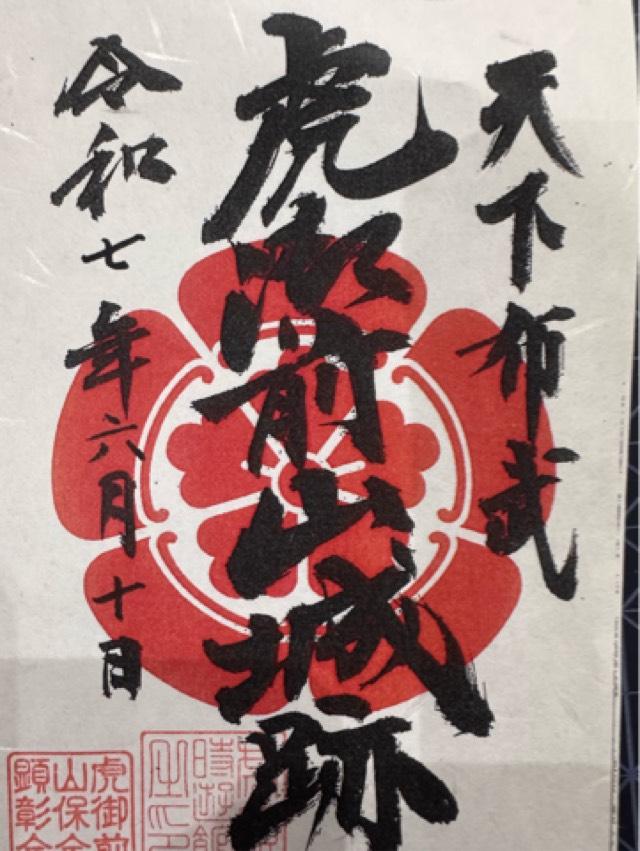 天下布武
虎御前山城跡
令和七年六月十日
虎御前
山保全
顕彰会